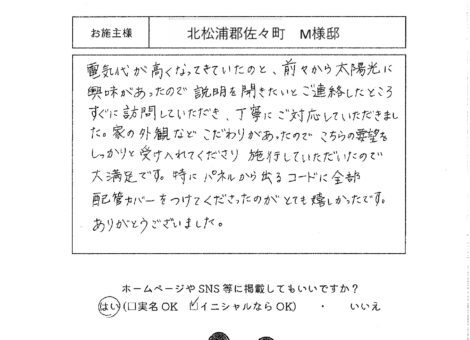 お施主様 北松浦郡佐々町 M様邸
電気代が高くなってきていたのと、前々から太陽光に
興味があったので説明を聞きたいとご連絡したところ
すぐに訪問していただき、丁寧にご対応していただきまし
た。家の外観などこだわりがあったのでこちらの要望を
しっかりと受け入れてくださり施行していただいたので
大満足です。特にパネルから出るコードに全部
配管カバーをつけてくださったのがとても嬉しかったです。
ありがとうございました。
ホームページやSNS等に掲載してもいいですか？
はい(□実名OK ☑イニシャルならOK) ・ いいえ